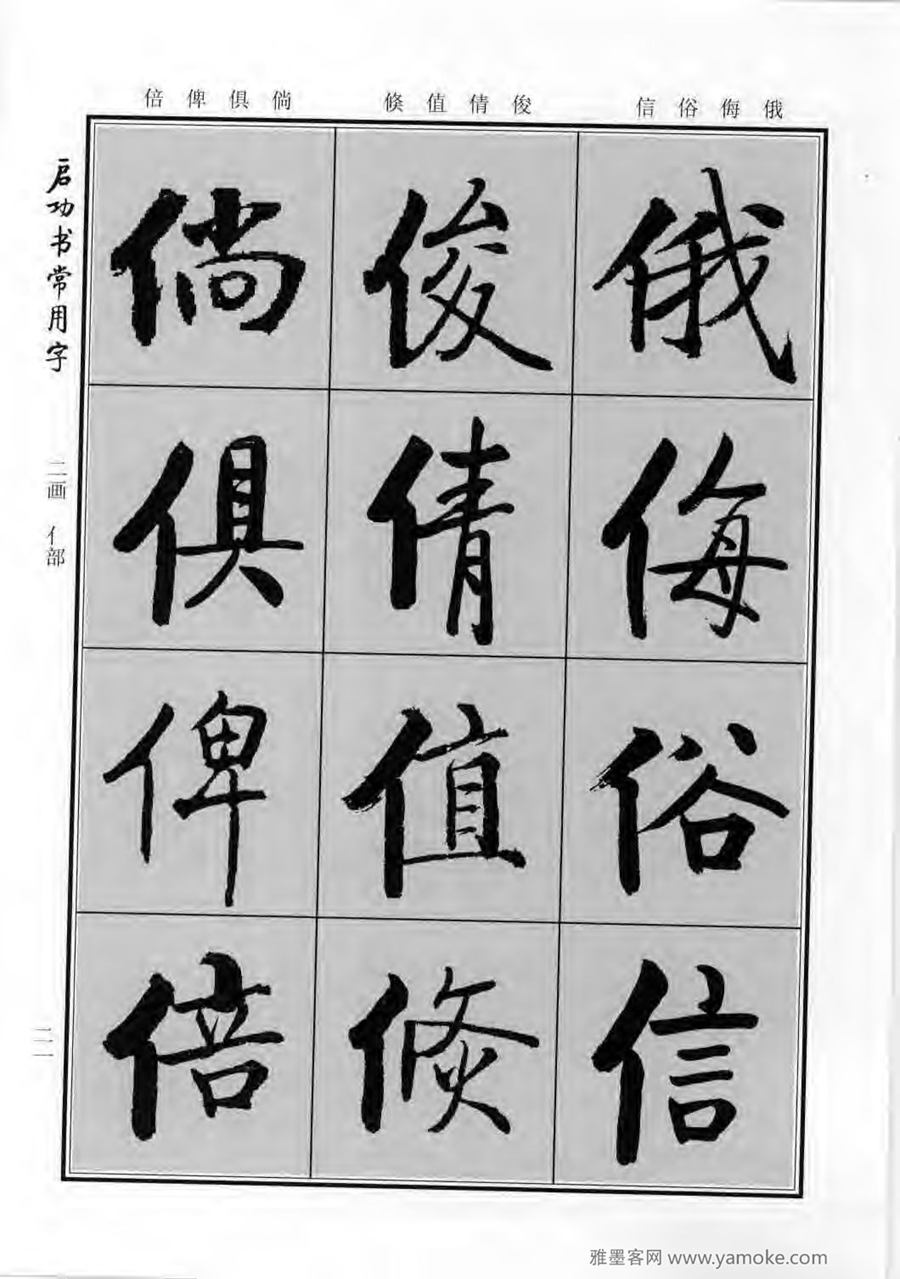 俄侮俗信
俊倩值倏
倘俱俾倍
俄
侮
俗
信
俊
倩
值
倏
倘
俱
俾
倍
启功书常用字
二画 亻部
二一
雅墨客网 www.yamoke.com